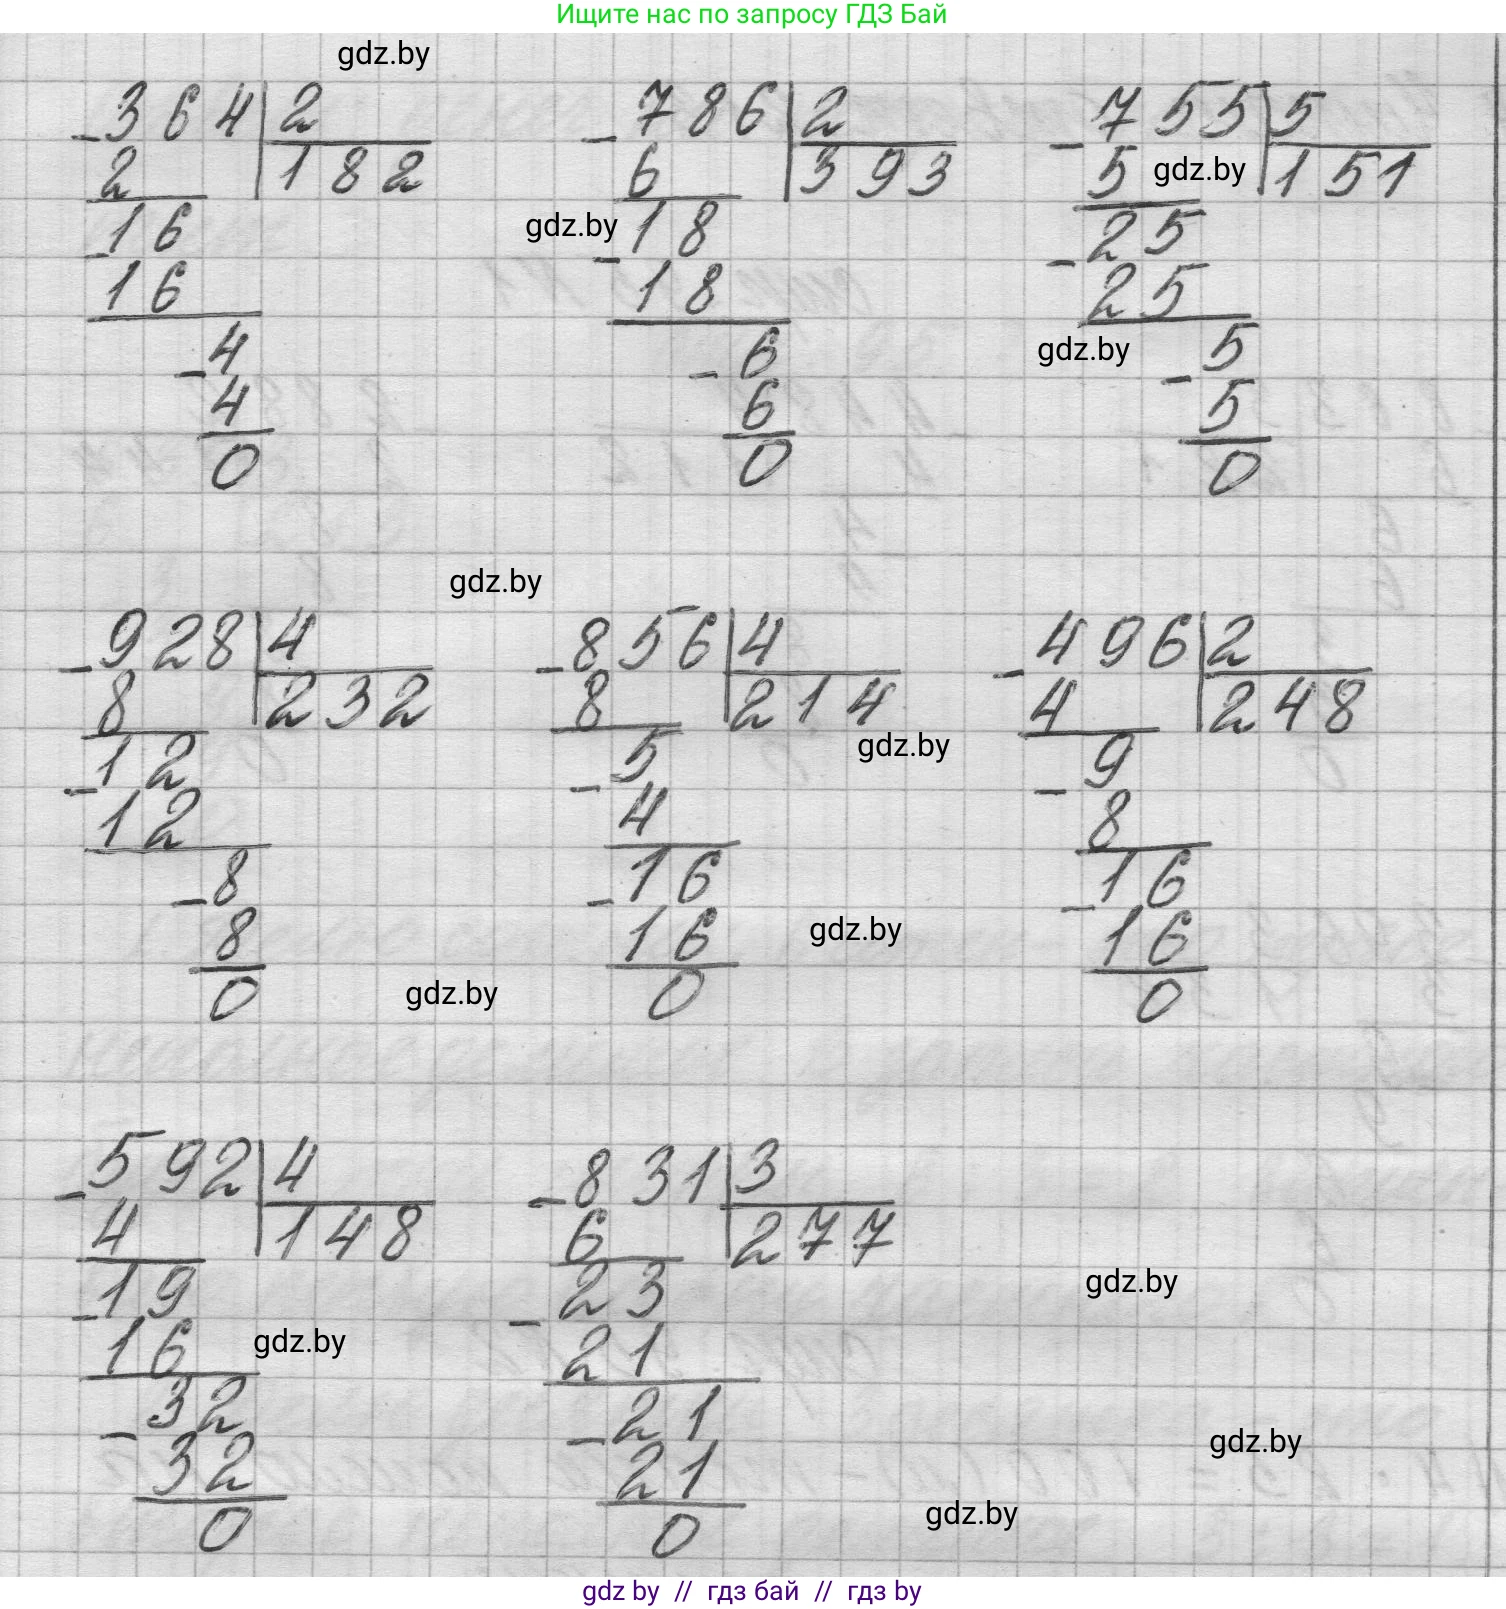 Ищите нас по запросу ГДЗ Бай
gdz.by
-364|2 -786|2 -755|5
2 182 6 393 5 gdz.by 151
-16 gdz.by -18 -25
16 18 25
-4 -6 gdz.by -5
4 6 5
0 0 0
gdz.by
-928|4 -856|4 -496|2
8 232 8 214 4 248
-12 -5 gdz.by -9
12 4 8
-8 -16 -16
8 16 gdz.by 16
0 gdz.by 0 0
-592|4 -831|3
4 148 6 277
-19 -23 gdz.by
16 gdz.by 21
-32 -21 gdz.by
32 21
0 0 gdz.by
gdz by // гдз бай // гдз by